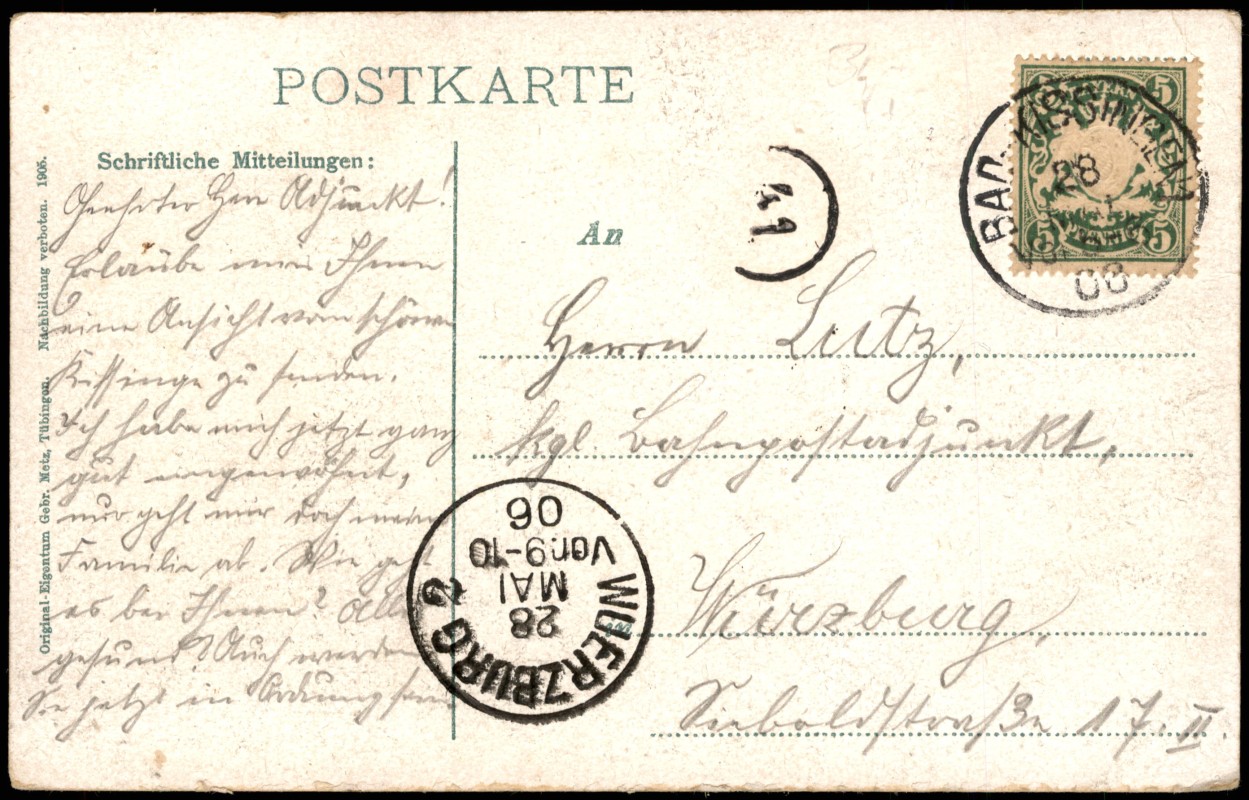 POSTKARTE
Schriftliche Mitteilungen:
Geehrter Herr Adjunkt!
Erlaube mir Ihnen
eine Ansicht vom schönen
Kissinge zu senden.
Ich habe mich jetzt ganz
gut eingewöhnt,
nur geht mir doch meine
Familie ab. Wie geht
es bei Ihnen? Alle
gesund? Auch werden
Sie jetzt in Ordnung sein
Original-Eigentum Gebr. Metz, Tübingen. Nachbildung verboten. 1905.
An
Herrn Lutz,
kgl. Bahnpostadjunkt,
Würzburg,
Sieboldstraße 17. II.
41
BAD KISSINGEN
28
06
5 5
5 5
PFENNIG
WUERZBURG 2
28
MAI
Vor.9-10
06